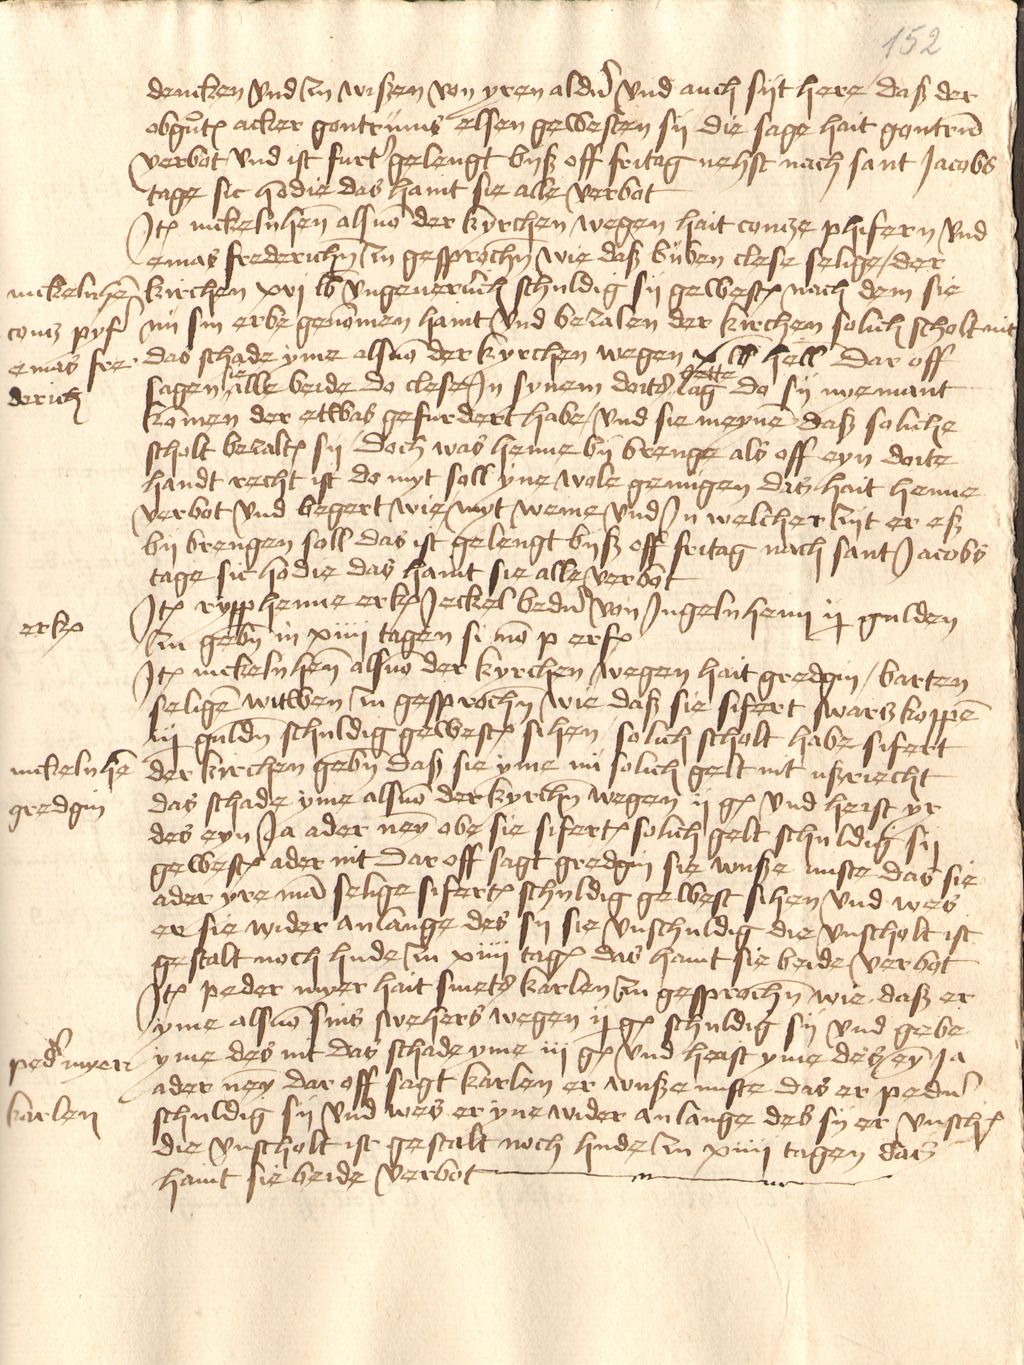 152
dencken und zu wißen von yren aldern und auch sijt here daß der
obgut acker gontrums elsen gewesten sij die sage hait gontrum
verbot und ist furter gelengt biß off fritag nehst nach sant Jacobs
tage sic hodie das hant sie alle verbot
Jt nickeln hen als von der kyrchen wegen hait contze phifern und
emas frederichn zu gesprochn wie daß buben clese selige der
nickeln hen kirchen xvi lb ungeverlich schuldig sij gewest nach dem sie
contz pyf nu sin erbe genomen hant und bezalen der kirchen solich scholt nit
emas fre das schade yme als von der kyrchen wegen x lb hell Dar off
derich sagen sie alle beide do clese Jn synem doits bette lag do sij niemant
komen der etwas gefurdert habe und sie meyne daß soliche
scholt bezalt sij doch was henne bij brenge als off eyn doite
handt recht ist do myt soll yne wole genugen das hait henne
verbot und begert wie myt weme und Jn welcher zijt er eß
bij brengen soll das ist gelengt biß off fritag nach sant Jacobs
tage sic hodie das hant sie alle verbot
Jt rypp henne erk Jeckel beder von Jngelnheim ij gulden
erk zu gebn in xiiii tagen si no p erf
Jt nickeln hen als von der kyrchen wegen hait gredgin barten
seligen witwen zu gesprochn wie daß sie sifert swarzkoppen
iij guldn schuldig gewest sihen solich scholt habe sifert
nickeln hen der kirchen gebn daß sie yme nu solich gelt nit ußriecht
gredgin das schade yme als von der kyrchn wegen ij g und heist yr
des eyn Ja ader neyn obe sie sifert solich gelt schuldig sij
gewest ader nit Dar off sagt gredgin sie wuße niste das sie
ader yre man selige sifert schuldig gewest sihen und wes
er sie wider anlange des sij sie unschuldig die unscholt ist
gestalt noch hude zu xiiii tag das hant sie beide verbot
Jt peder nyer hait smets karlen zu gesprochn wie daß er
yme als von sins swehers wegen ij g schuldig sij und gebe
peder nyer yme des nit das schade yme iij g und heist yme des eyn Ja
ader neyn dar off sagt karlen er wuße niste das er pedern
karlen schuldig sij und wes er yne wider anlange des sij er unsch
die unscholt ist gestalt noch hude zu xiiii tagen das
hant sie beide verbot